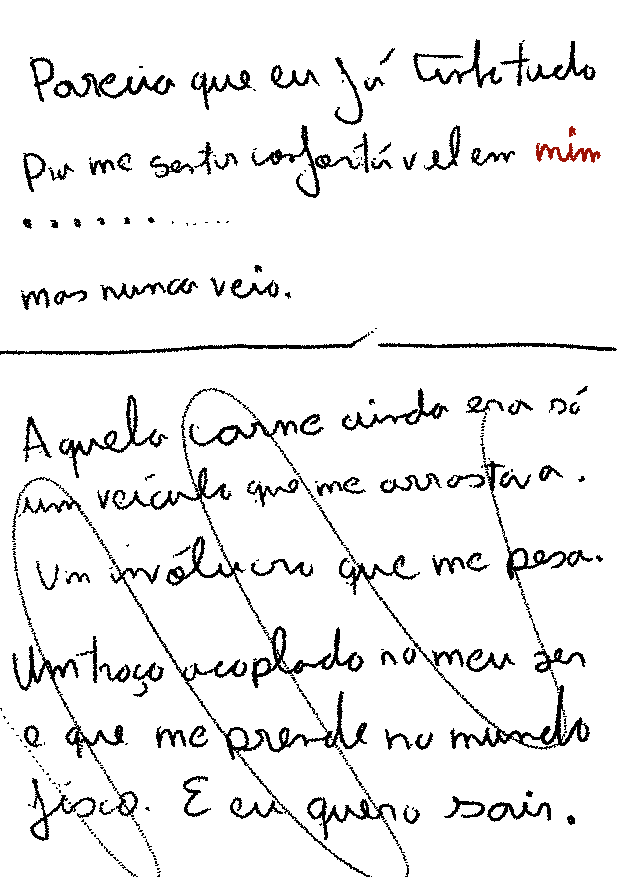 Parecia que eu já tinha tudo
Pra me sentir confortável em mim
............
mas nunca veio.
Aquela carne ainda era só
um veículo que me arrastava.
Um invólucro que me pesa.
Um troço acoplado no meu ser
e que me prende no mundo
físico. E eu quero sair.